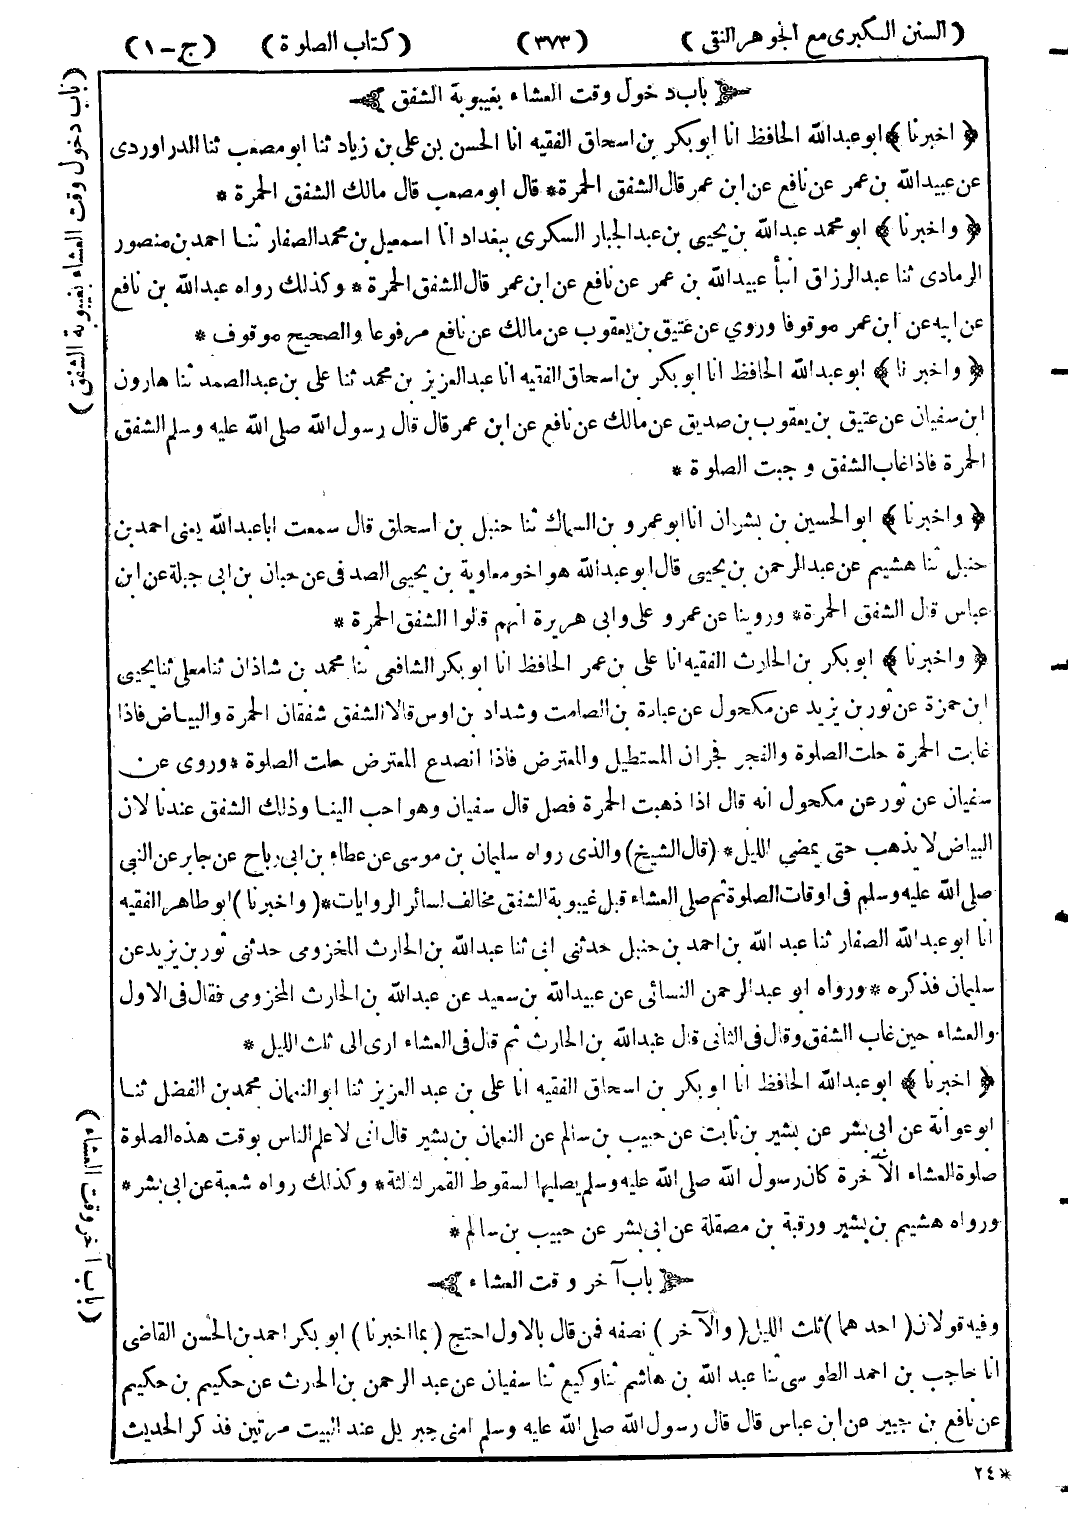 (السنن الكبرى مع الجوهر النقى) (٣٧٣) (كتاب الصلوة) (ج-١)
باب دخول وقت العشاء بغيبوبة الشفق
﴿ اخبرنا ﴾ ابو عبدالله الحافظ انا ابو بكر بن اسحاق الفقيه انا الحسن بن على بن زياد ثنا ابو مصعب ثنا الدراوردى
عن عبيدالله بن عمر عن نافع عن ابن عمر قال الشفق الحمرة * قال ابو مصعب قال مالك الشفق الحمرة *
﴿ واخبرنا ﴾ ابو محمد عبدالله بن يحيى بن عبدالجبار السكرى ببغداد انا اسمعيل بن محمد الصفار ثنا احمد بن منصور
الرمادى ثنا عبدالرزاق انبأ عبيدالله بن عمر عن نافع عن ابن عمر قال الشفق الحمرة * وكذلك رواه عبدالله بن نافع
عن ابيه عن ابن عمر موقوفا وروي عن عتيق بن يعقوب عن مالك عن نافع مرفوعا والصحيح موقوف *
﴿ واخبرنا ﴾ ابو عبدالله الحافظ انا ابو بكر بن اسحاق الفقيه انا عبدالعزيز بن محمد ثنا على بن عبدالصمد ثنا هارون
ابن سفيان عن عتيق بن يعقوب بن صديق عن مالك عن نافع عن ابن عمر قال قال رسول الله صلى الله عليه وسلم الشفق
الحمرة فاذا غاب الشفق وجبت الصلوة *
﴿ واخبرنا ﴾ ابو الحسين بن بشران انا ابو عمرو بن السماك ثنا حنبل بن اسحاق قال سمعت اباعبدالله يعنى احمد بن
حنبل ثنا هشيم عن عبدالرحمن بن يحيى قال ابو عبدالله هو اخو معاوية بن يحيى الصدفى عن حبان بن ابى جبلة عن ابن
عباس قال الشفق الحمرة * وروينا عن عمر وعلى وابى هريرة انهم قالوا الشفق الحمرة *
﴿ واخبرنا ﴾ ابو بكر بن الحارث الفقيه انا على بن عمر الحافظ انا ابو بكر الشافعى ثنا محمد بن شاذان ثنا معلى ثنا يحيى
ابن حمزة عن ثور بن يزيد عن مكحول عن عبادة بن الصامت وشداد بن اوس قالا الشفق شفقان الحمرة والبياض فاذا
غابت الحمرة حلت الصلوة والفجر فجران المستطيل والمعترض فاذا انصدع المعترض حلت الصلوة * وروى عن
سفيان عن ثور عن مكحول انه قال اذا ذهبت الحمرة فصل قال سفيان وهو احب الينا وذلك الشفق عندنا لان
البياض لا يذهب حتى يمضي الليل * (قال الشيخ) والذى رواه سليمان بن موسى عن عطاء بن ابى رباح عن جابر عن النبي
صلى الله عليه وسلم فى اوقات الصلوة ثم صلى العشاء قبل غيبوبة الشفق مخالف لسائر الروايات * (واخبرنا) ابو طاهر الفقيه
انا ابو عبدالله الصفار ثنا عبد الله بن احمد بن حنبل حدثنى ابى ثنا عبدالله بن الحارث المخزومى حدثنى ثور بن يزيد عن
سليمان فذكره * ورواه ابو عبدالرحمن النسائى عن عبيدالله بن سعيد عن عبدالله بن الحارث المخزومى فقال فى الاول
والعشاء حين غاب الشفق وقال فى الثانى قال عبدالله بن الحارث ثم قال فى العشاء ارى الى ثلث الليل *
﴿ اخبرنا ﴾ ابو عبدالله الحافظ انا ابو بكر بن اسحاق الفقيه انا على بن عبد العزيز ثنا ابو النعمان محمد بن الفضل ثنا
ابو عوانة عن ابى بشر عن بشير بن ثابت عن حبيب بن سالم عن النعمان بن بشير قال انى لاعلم الناس بوقت هذه الصلوة
صلوة العشاء الآخرة كان رسول الله صلى الله عليه وسلم يصليها لسقوط القمر لثالثة * وكذلك رواه شعبة عن ابى بشر *
ورواه هشيم بن بشير ورقبة بن مصقلة عن ابى بشر عن حبيب بن سالم *
باب آخر وقت العشاء
وفيه قولان (احدهما) ثلث الليل (والآخر) نصفه فمن قال بالاول احتج (بما اخبرنا) ابو بكر احمد بن الحسن القاضى
انا حاجب بن احمد الطوسى ثنا عبد الله بن هاشم ثنا وكيع ثنا سفيان عن عبد الرحمن بن الحارث عن حكيم بن حكيم
عن نافع بن جبير عن ابن عباس قال قال رسول الله صلى الله عليه وسلم امنى جبريل عند البيت مرتين فذكر الحديث
*٢٤
(باب دخول وقت العشاء بغيبوبة الشفق)
(باب آخر وقت العشاء)